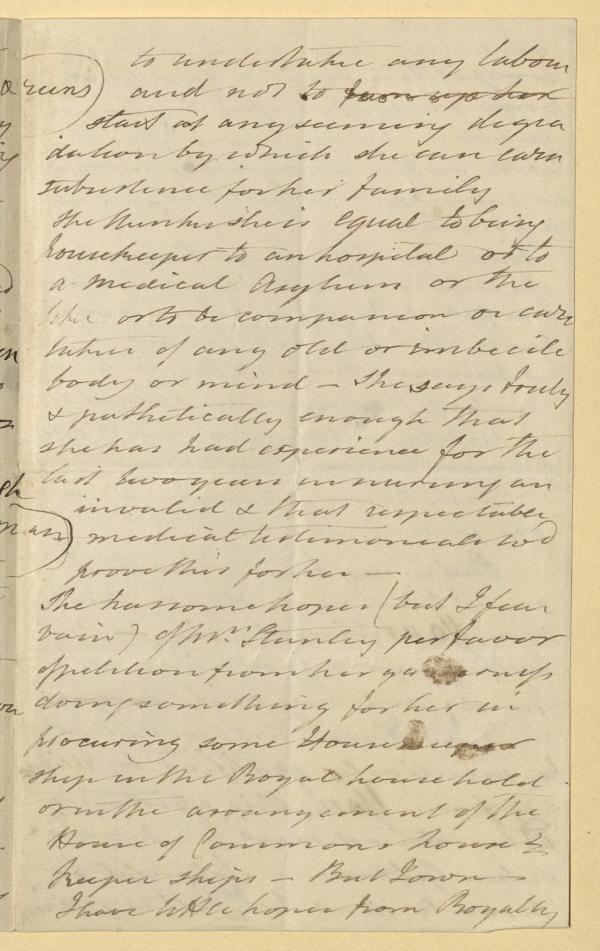 to undertake any labour
and not to turn up her
start at any seeming degra
dation by which she can earn
subsistence for her family
She thinks she is equal to being
housekeeper to an hospital or to
a medical Asylum or the
like or to be companion or care
taker of any old or imbecile
body or mind – She says truly
& pathetically enough that
she has had experience for the
last two years in nursing an
invalid & that respectable
medical testimonials wd
prove this for her —
She has some hopes (but I fear
vain) of Mrs. Stanley per favor
of petition from her
doing something for her in
procuring some Housekeeper
ship in the Royal household
or in the arrangement of the
House of Commons house
keeper ships – But I own –
I have little hopes from Royalty